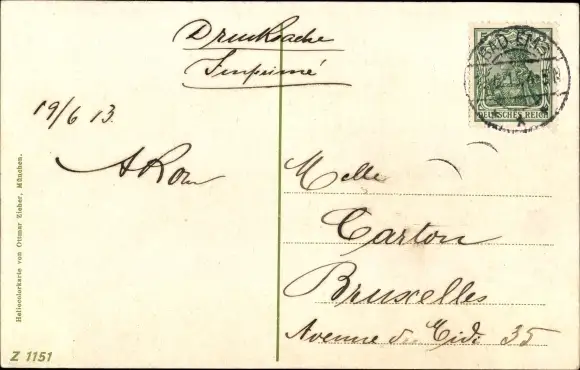 Drucksache
Imprimé
5
BAD EMS
DEUTSCHES REICH
19/6 13.
Melle
Carton
Bruxelles
Avenue du Midi 35
Heliocolorkarte von Ottmar Zieher, München.
Z 1151